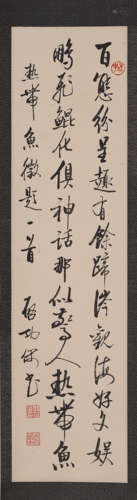 百態紛呈趣有餘蹄涔觀海好文娛
鵬飛鯤化俱神話那似驚人熱帶魚
熱帶魚徵題一首
啟功